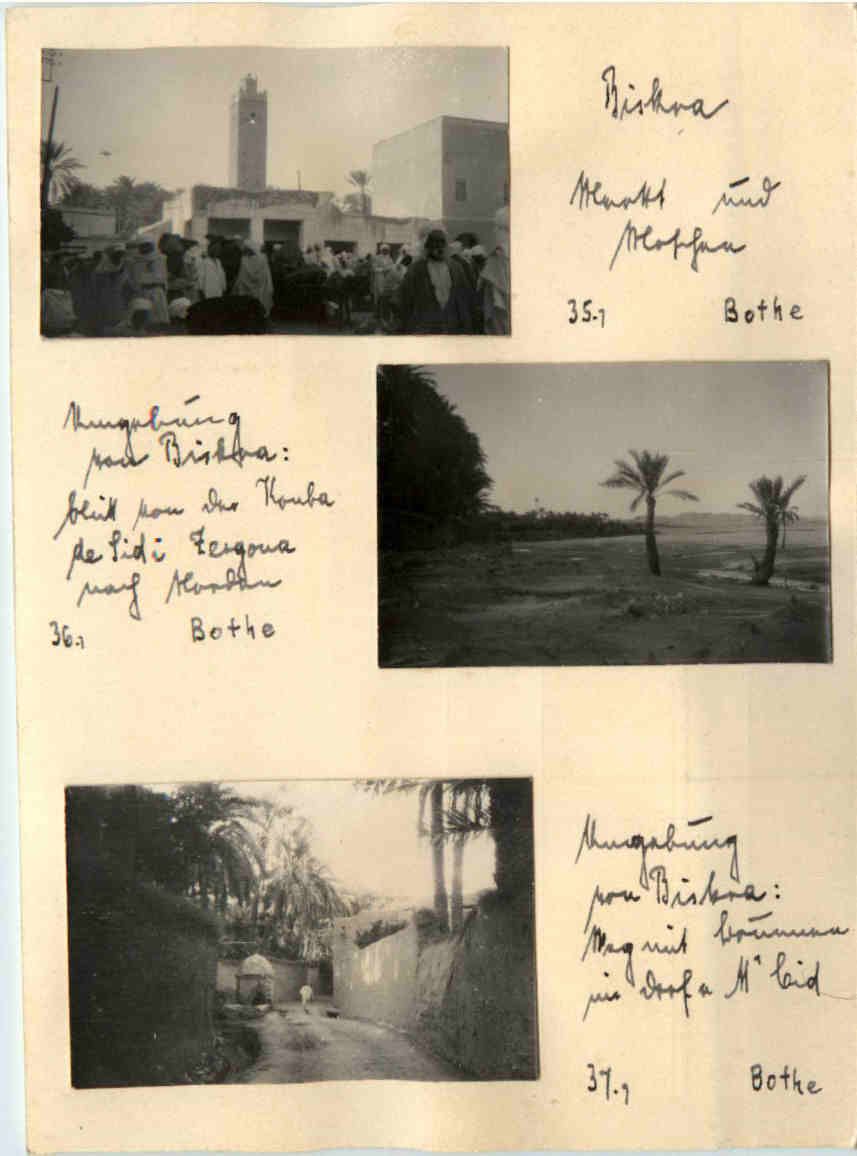 Biskra
Markt und
Moschee
35.,
Bothe
Umgebung
von Biskra:
Blick von der Kouba
de Sidi Zergoua
nach Norden
36.,
Bothe
Umgebung
von Biskra:
Weg mit Brunnen
im Dorfe M' Cid
37.,
Bothe